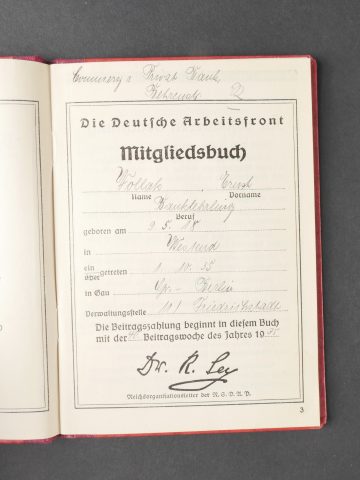 Commerz u Privat Bank,
Behrenstr.
Die Deutsche Arbeitsfront
Mitgliedsbuch
Pollak, Ernst
Name Vorname
Banklehrling
Beruf
geboren am 9. 5. 18
in
ein
über getreten 1. 10. 35
in Gau Gr.- Berlin
Verwaltungsstelle Friedrichstadt
Die Beitragszahlung beginnt in diesem Buch
mit der Beitragswoche des Jahres 1935
Dr. R. Ley
Reichsorganisationsleiter der N.S.D.A.P.
3